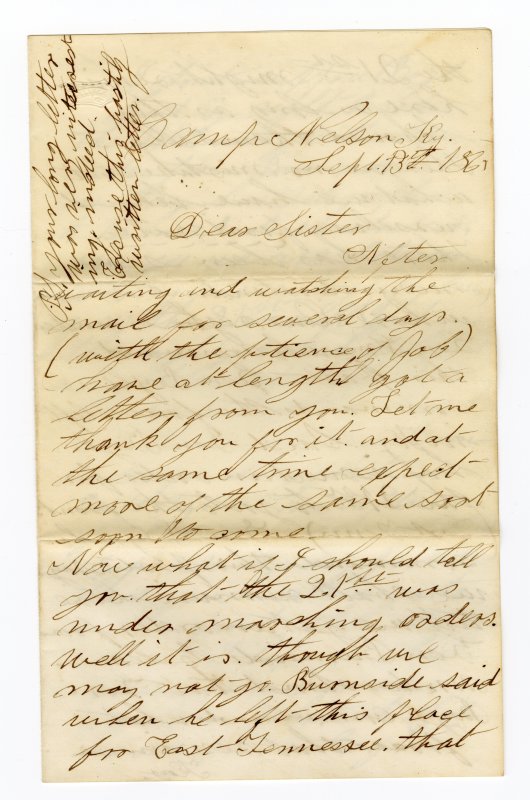 Camp Nelson Ky.
Sept. 13th 186
Dear Sister
After
waiting and watching the
mail for several days.
(with the patience of Job)
have at length got a
letter from you. Let me
thank you for it. and at
the same time expect
more of the same sort
soon to come
Now what if I should tell
you that the 21st was
under marching orders.
well it is. though we
may not go. Burnside said
when he left this place
for East Tennessee. that
your long letter
was very interest
ing indeed.
Excuse this hastily
written letter.